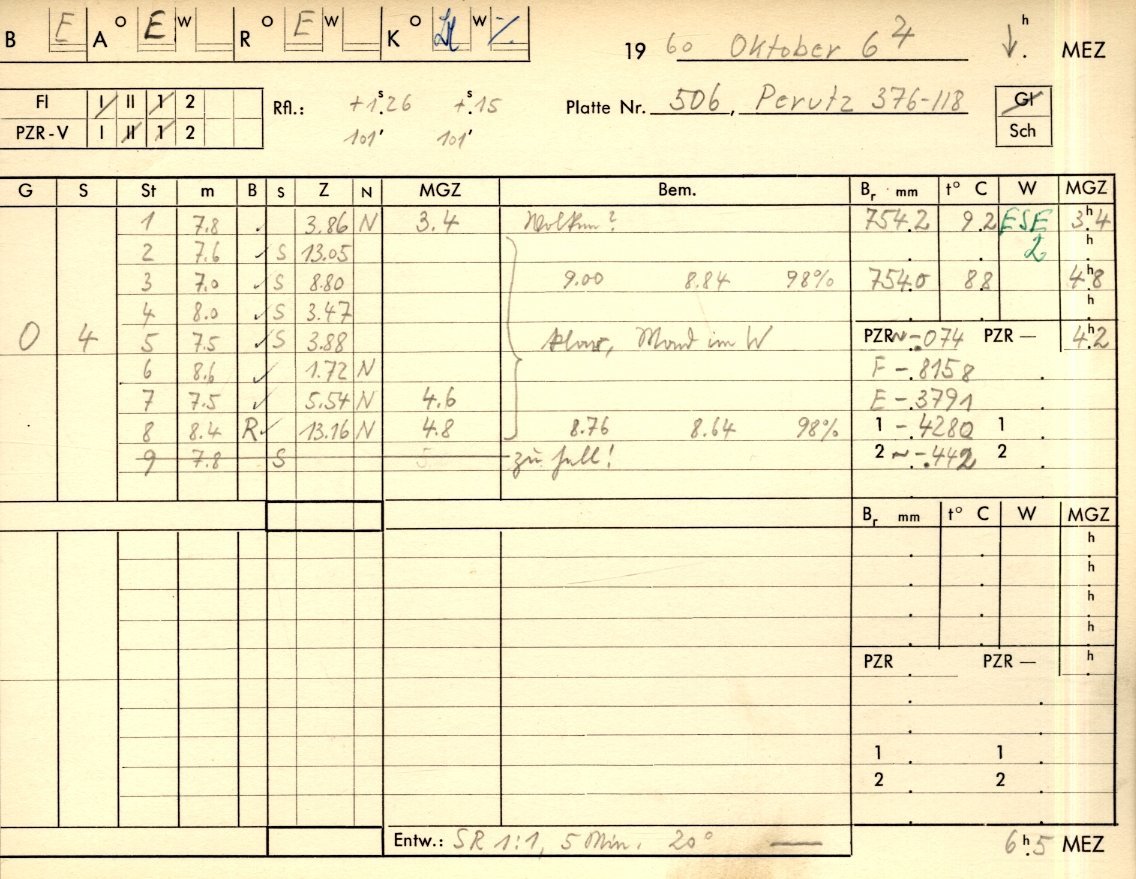 B E A O E W R O E W K O W %
19 60 Oktober 6 h MEZ
FI I II 1 2
PZR-V I II 1 2
Rfl.: +1.ˢ26 +.ˢ15
101' 101'
Platte Nr. 506, Perutz 376-118
Gl
Sch
G S St m B S Z N MGZ Bem. Bᵣ mm t° C W MGZ
1 7.8 ✓ 3.86 N 3.4 Wolken? 754.2 9.2 ESE 3ʰ4
2 7.6 ✓ S 13.05 2 h
3 7.0 ✓ S 8.80 9.00 8.84 98% 754.0 8.8 4ʰ8
4 8.0 ✓ S 3.47 h
0 4 5 7.5 ✓ S 3.88 klar, Mond im W PZR ~ -.074 PZR — 4ʰ2
6 8.6 ✓ 1.72 N F -.8158
7 7.5 ✓ 5.54 N 4.6 E -.3791
8 8.4 R ✓ 13.16 N 4.8 8.76 8.64 98% 1 -.4280 1
9 7.8 S 5. zu hell! 2 ~ -.442 2
Bᵣ mm t° C W MGZ
h
h
h
h
PZR PZR — h
1 1
2 2
Entw.: SR 1:1, 5 Min. 20° — 6ʰ.5 MEZ